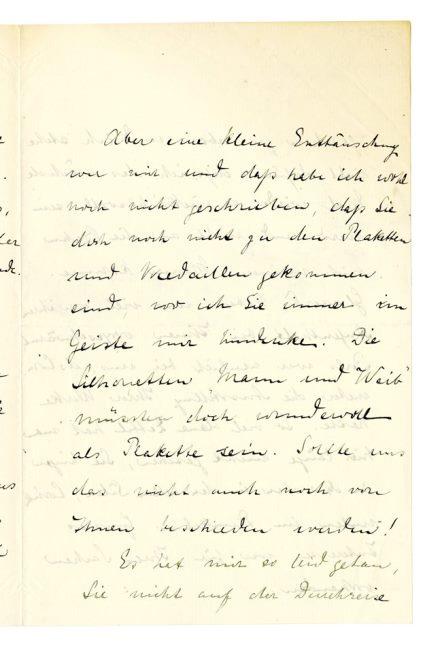 Aber eine kleine Enttäuschung
war mir und daß habe ich wohl
noch nicht geschrieben, daß Sie
doch noch nicht zu den Plaketten
und Medaillen gekommen
sind wo ich Sie immer im
Geiste mir hindenke. Die
Silhouetten Mann und Weib
müssten doch wundervoll
als Plakette sein. Sollte uns
das nicht auch noch von
Ihnen beschieden werden!
Es hat mir so leid getan,
Sie nicht auf der Durchreise